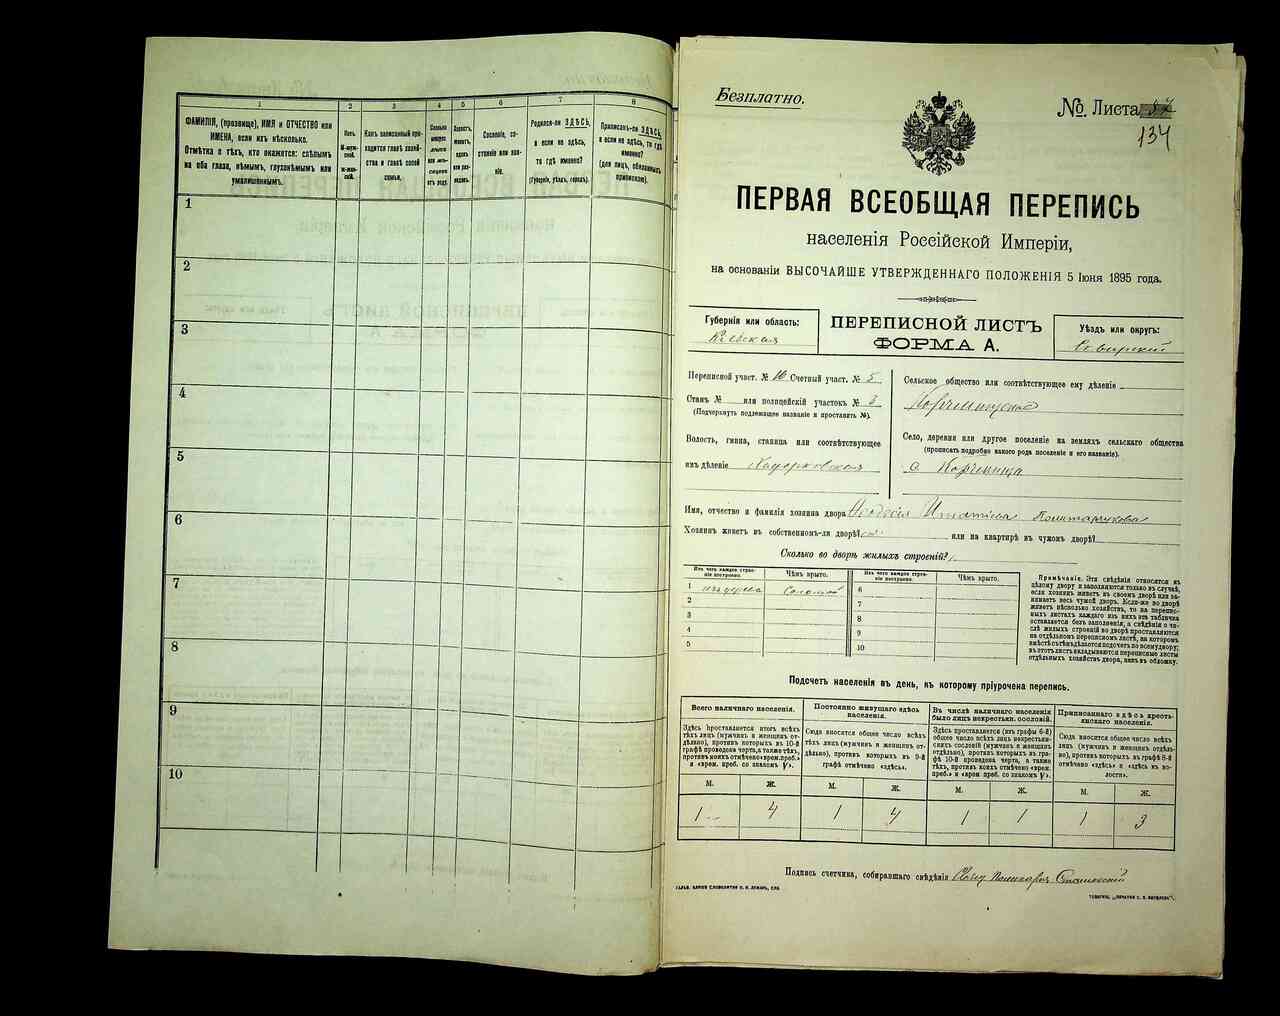 1
2
3
4
5
6
7
8
ФАМИЛІЯ, (прозвище), ИМЯ и ОТЧЕСТВО или
ИМЕНА, если ихъ нѣсколько.
Отмѣтка о тѣхъ, кто окажется: слѣпымъ
на оба глаза, нѣмымъ, глухонѣмымъ или
умалишеннымъ.
Полъ.
М-муж-
ской.
Ж-жен-
скій.
Какъ записанный при-
ходится главѣ хозяй-
ства и главѣ своей
семьи.
Сколько
минуло
лѣтъ
или мѣ-
сяцевъ
отъ роду.
Холостъ,
женатъ,
вдовъ
или раз-
веденъ.
Сословіе, со-
стояніе или зва-
ніе.
Родился-ли ЗДѢСЬ,
а если не здѣсь,
то гдѣ именно?
(Губернія, уѣздъ, городъ).
Приписанъ-ли ЗДѢСЬ,
а если не здѣсь, то гдѣ
именно?
(для лицъ, обязанныхъ
припискою).
1
2
3
4
5
6
7
8
9
10
Безплатно.
№ Листа 57
134
ПЕРВАЯ ВСЕОБЩАЯ ПЕРЕПИСЬ
населенія Россійской Имперіи,
на основаніи ВЫСОЧАЙШЕ УТВЕРЖДЕННАГО ПОЛОЖЕНІЯ 5 Іюня 1895 года.
Губернія или область:
Кіевская
ПЕРЕПИСНОЙ ЛИСТЪ
ФОРМА А.
Уѣздъ или округъ:
Сквирскій
Переписной участ. № 10 Счетный участ. № 5
Станъ № или полицейскій участокъ № 3
(Подчеркнуть подлежащее названіе и проставить №).
Волость, гмина, станица или соотвѣтствующее
имъ дѣленіе Ходорковская
Сельское общество или соотвѣтствующее ему дѣленіе
Корчмищское
Село, деревня или другое поселеніе на земляхъ сельскаго общества
(прописать подробно какого рода поселеніе и его названіе).
с. Корчмища
Имя, отчество и фамилія хозяина двора Феодосія Игнатіева
Хозяинъ живетъ въ собственномъ-ли дворѣ?
или на квартирѣ въ чужомъ дворѣ?
Сколько во дворѣ жилыхъ строеній? 1
Изъ чего каждое строе-
ніе построено.
Чѣмъ крыто.
Изъ чего каждое строе-
ніе построено.
Чѣмъ крыто.
1 Соломой
2
3
4
5
6
7
8
9
10
Примѣчаніе. Эти свѣдѣнія относятся къ
цѣлому двору и заполняются только въ случаѣ,
если хозяинъ живетъ въ своемъ дворѣ или за-
нимаетъ весь чужой дворъ. Если-же во дворѣ
живетъ нѣсколько хозяйствъ, то на перепис-
ныхъ листахъ каждаго изъ нихъ эта табличка
оставляется безъ заполненія, а свѣдѣнія о чи-
слѣ жилыхъ строеній во дворѣ проставляются
на отдѣльномъ переписномъ листѣ, на которомъ
вмѣстѣ съ тѣмъ дѣлается подсчетъ по всему двору;
въ этотъ листъ вкладываются переписные листы
отдѣльныхъ хозяйствъ двора, какъ въ обложку.
Подсчетъ населенія въ день, къ которому пріурочена перепись.
Всего наличнаго населенія.
Здѣсь проставляется итогъ всѣхъ
тѣхъ лицъ (мужчинъ и женщинъ от-
дѣльно), противъ которыхъ въ 10-й
графѣ проведена черта, а также тѣхъ,
противъ коихъ отмѣчено «врем. преб.»
и «врем. преб. со знакомъ V».
Постоянно живущаго здѣсь
населенія.
Сюда вносится общее число всѣхъ
тѣхъ лицъ (мужчинъ и женщинъ от-
дѣльно), противъ которыхъ въ 9-й
графѣ отмѣчено «здѣсь».
Въ числѣ наличнаго населенія
было лицъ некрестьян. сословій.
Здѣсь проставляется (изъ графы 6-й)
общее число всѣхъ лицъ некрестьян-
скихъ сословій (мужчинъ и женщинъ
отдѣльно), противъ которыхъ въ гра-
фѣ 10-й проведена черта, а также
тѣхъ, противъ коихъ отмѣчено «врем.
преб.» и «врем. преб. со знакомъ V».
Приписаннаго здѣсь кресть-
янскаго населенія.
Сюда вносится общее число всѣхъ
лицъ (мужчинъ и женщинъ отдѣль-
но), противъ которыхъ въ графѣ 8-й
отмѣчено «здѣсь» и «здѣсь въ во-
лости».
М. Ж. М. Ж. М. Ж. М. Ж.
1 4 1 4 1 1 1 3
Подпись счетчика, собиравшаго свѣдѣнія